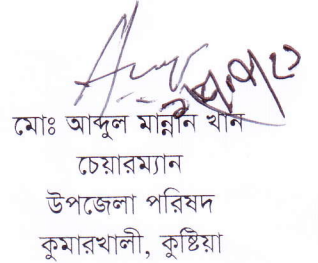 মোঃ আব্দুল মান্নান খান
চেয়ারম্যান
উপজেলা পরিষদ
কুমারখালী, কুষ্টিয়া